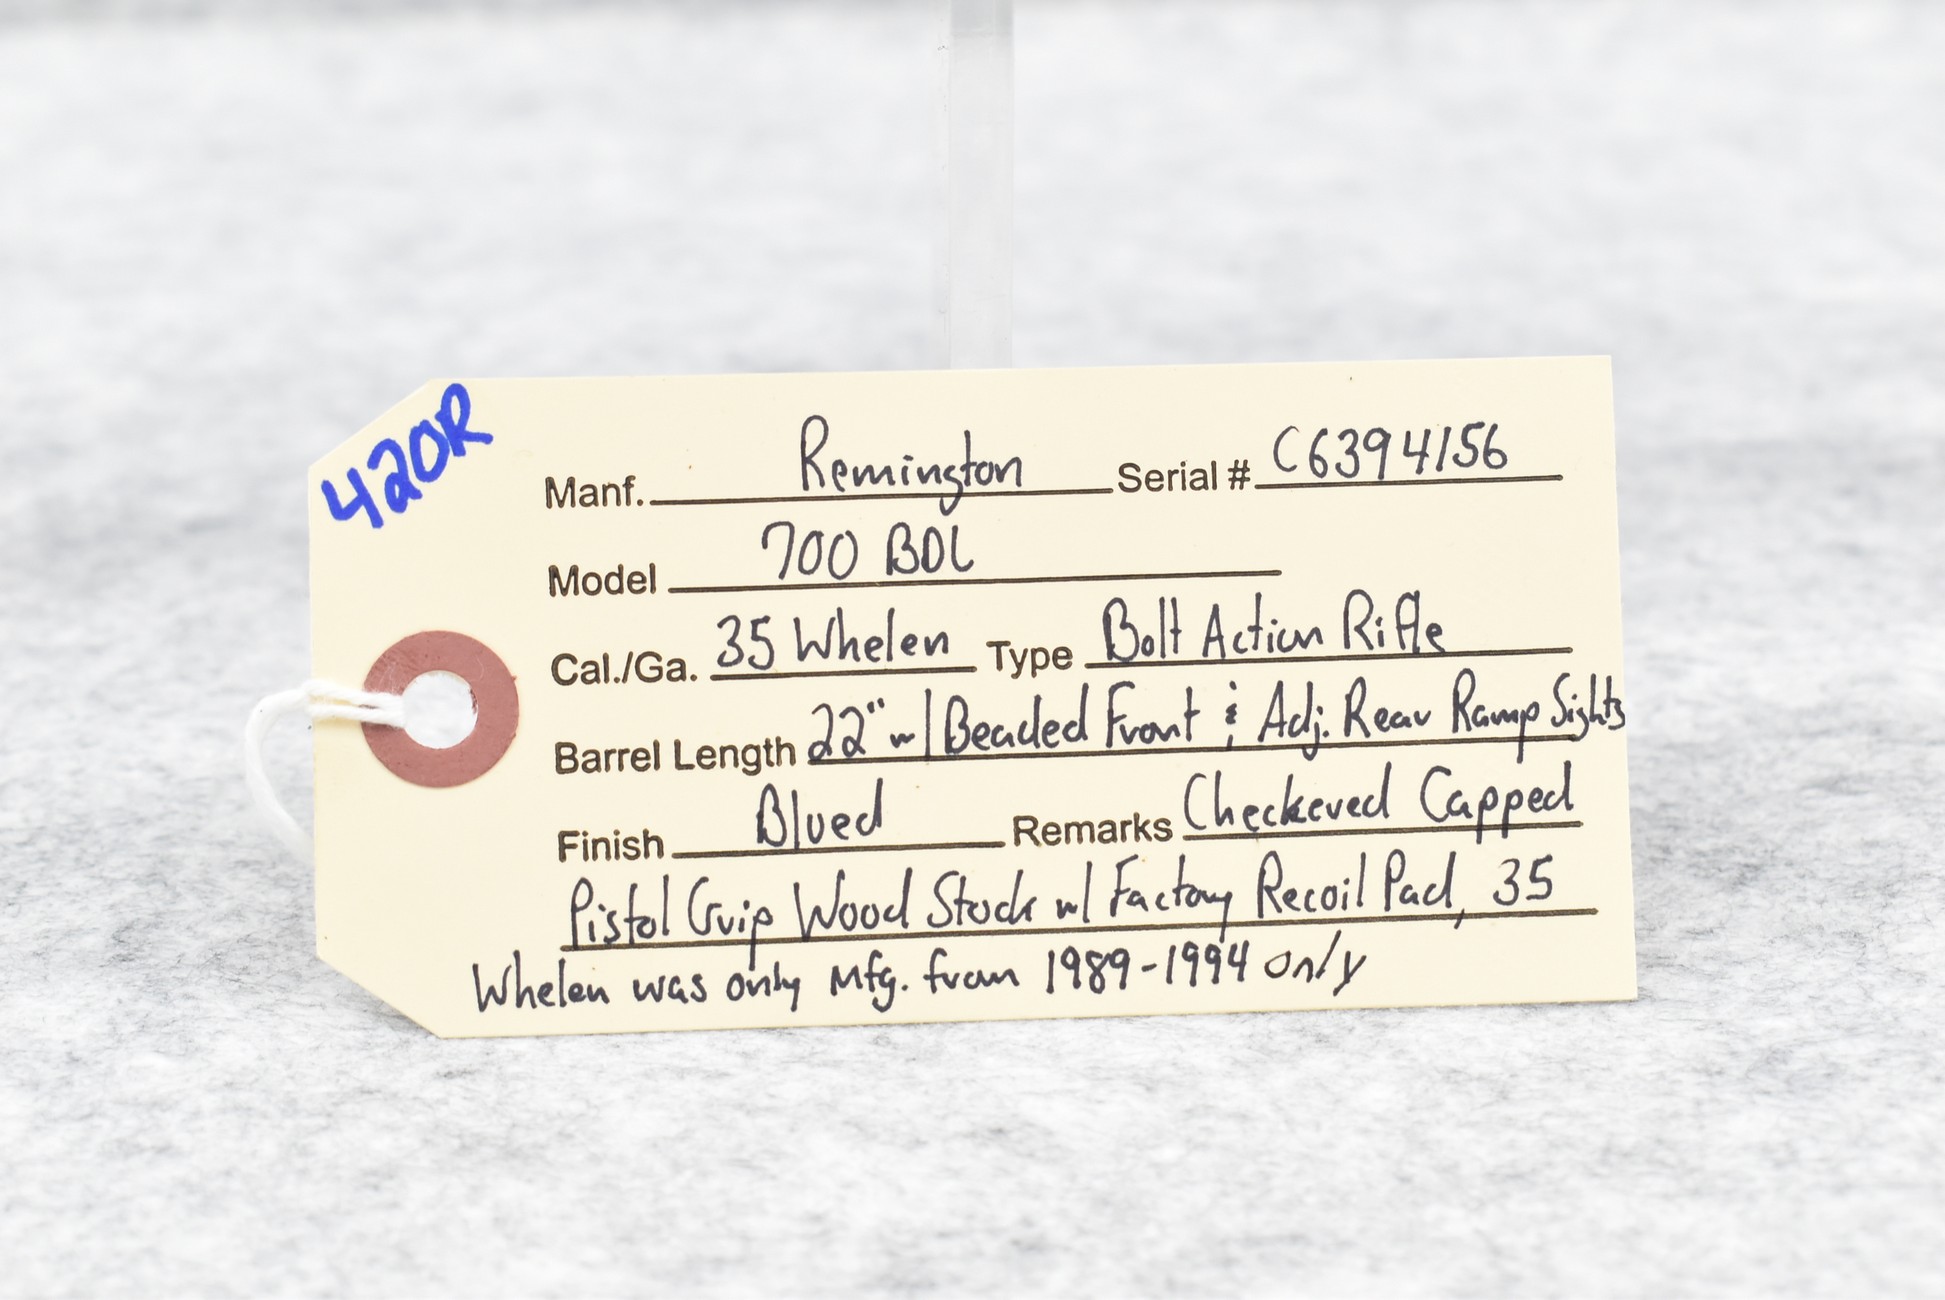 420R
Manf. Remington Serial # C6394156
Model 700 BDL
Cal./Ga. 35 Whelen Type Bolt Action Rifle
Barrel Length 22" w/ Beaded Front & Adj. Rear Ramp Sights
Finish Blued Remarks Checkered Capped
Pistol Grip Wood Stock w/ Factory Recoil Pad, 35
Whelen was only Mfg. from 1989-1994 only